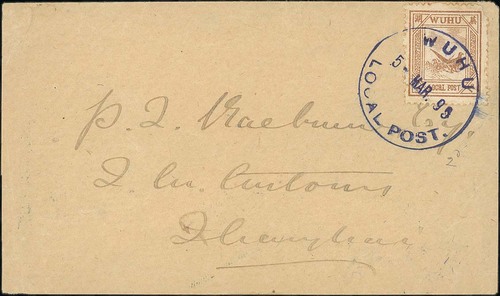 WUHU
LOCAL POST.
WUHU
LOCAL POST.
5 MAR. 95
P. L. Raeburn Esq
I. M. Customs
Shanghai